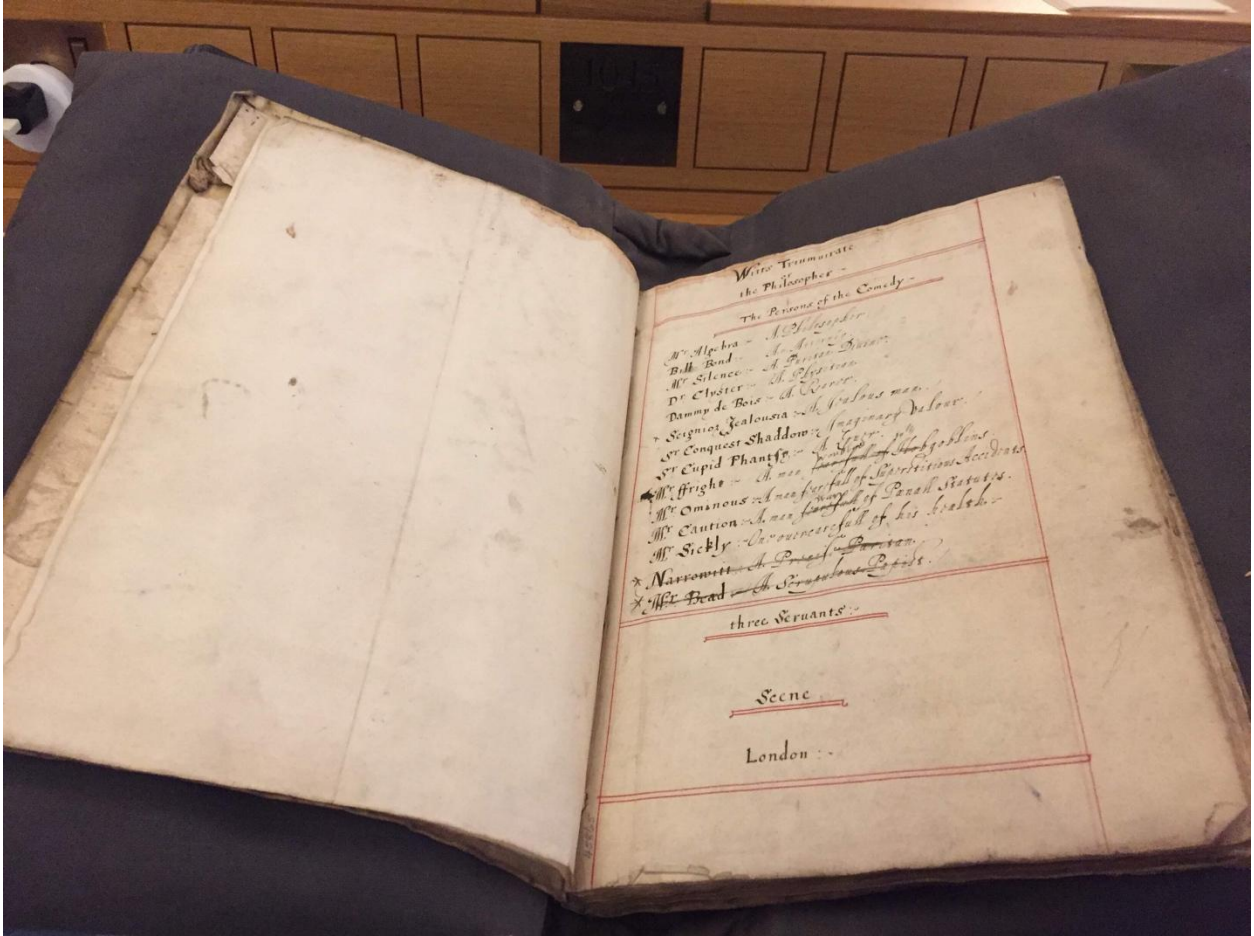 Witts Triumuirate
or
the Philosopher -
The Persons of the Comedy -
Mr Algebra - A Philosopher
Bill Bond - A
Mr Silence - A Puritan Divine
Dr Clyster - A Physition
Dammy de Bois - A Rorer.
Seignior Jealousia - A Jealous man.
Sr Conquest Shaddow - Imaginary Valour.
Sr Cupid Phantsy - A Louer.
Mr ffright - A man fearfull of Hobgoblins
Mr Ominous - A man fearfull of Superstitious Accidents
Mr Caution - A man fearefull of Penall Statutes.
Mr Sickly - One ouercarefull of his health -
* Narrowitt - A Puritan
* Mr Bead - A Papist.
three Servants :-
Scene
London :-
1015